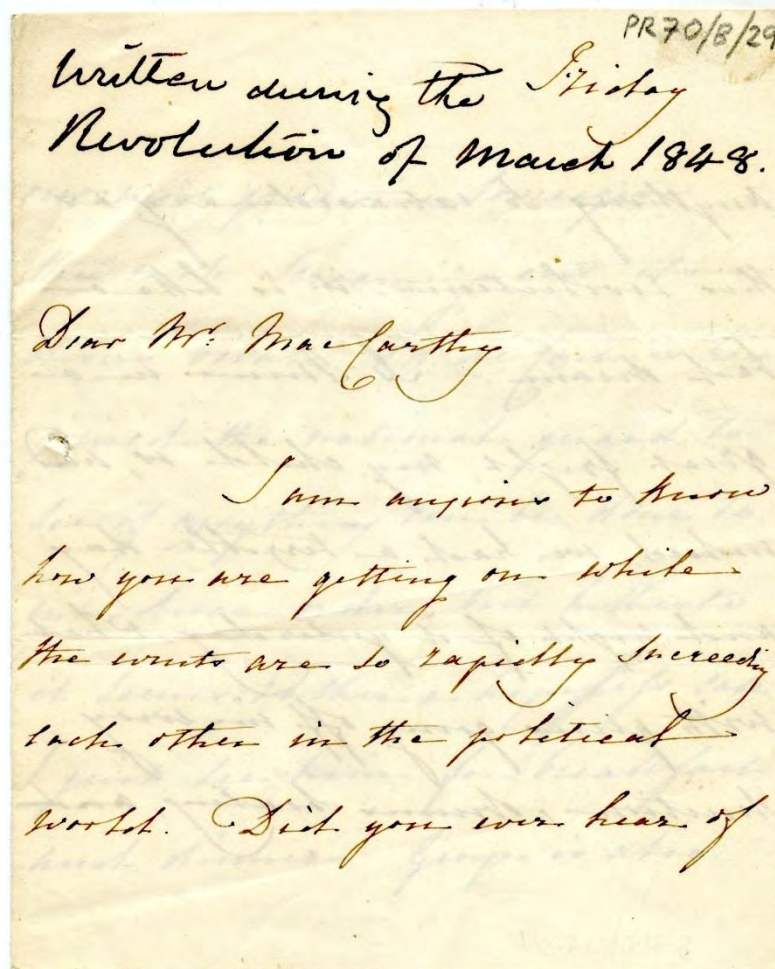 PR70/8/29
Written during the Friday
Revolution of March 1848.
Dear Mr. MacCarthy
I am anxious to know
how you are getting on while
the events are so rapidly succeeding
each other in the political
world. Did you ever hear of